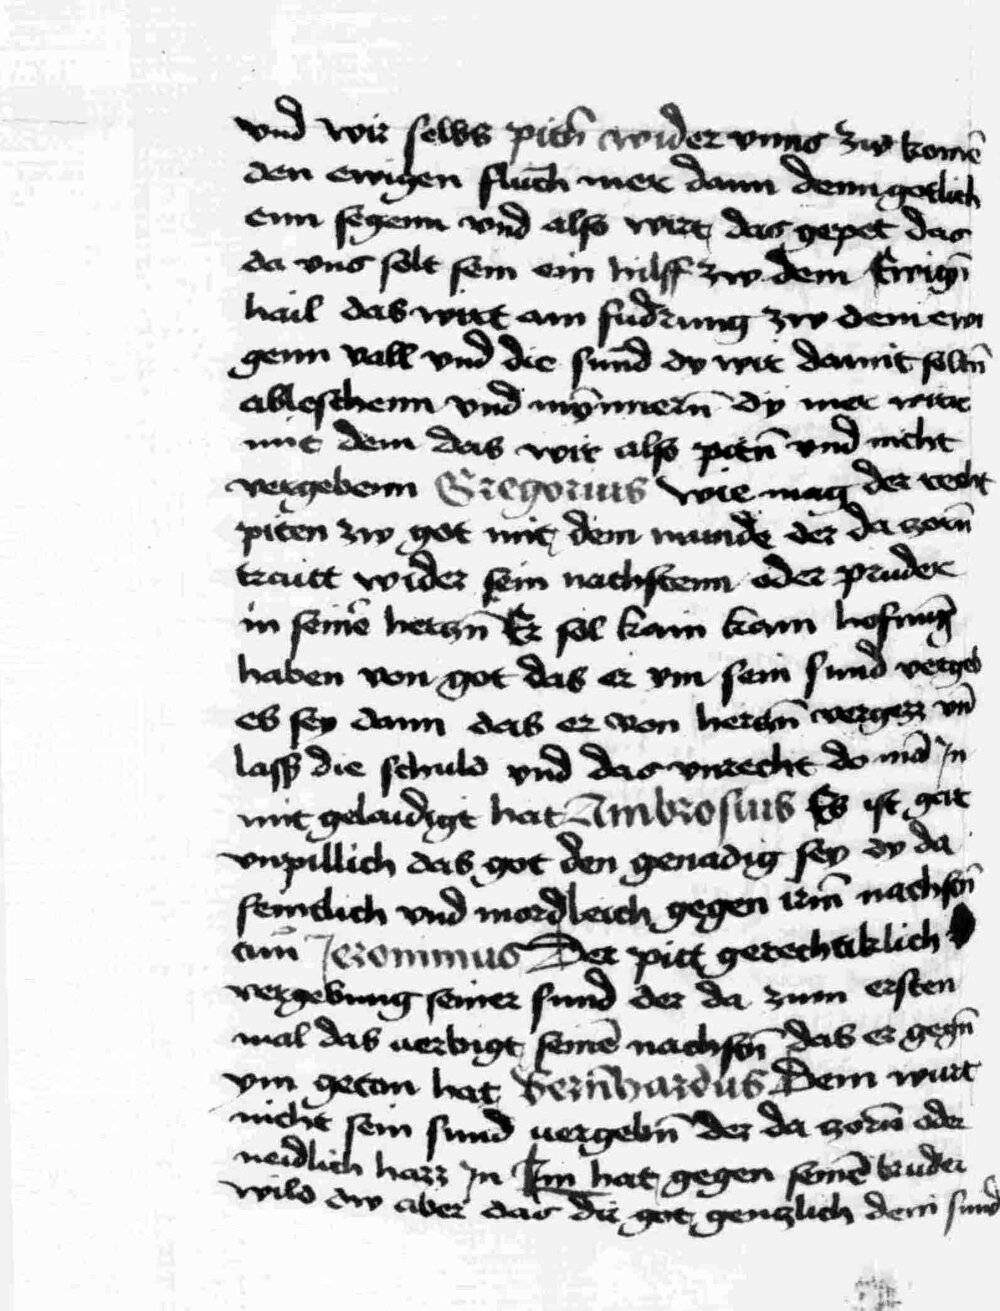 vnd wir selbs pitñ wider vnns zw komẽ
den ewigen fluch mer dann denn gotlich
enn segenn vnd also wirt das gepet das
da vns solt sein ein hilff zw dem Ewigñ
hail das wirt ain fudrung zw dem ewi
genn vall vnd die sund dy wir damit soltñ
ableschenn vnd mynnerñ dy mer wir
mit dem das wir also pitñ vnd nicht
vergebenn Gregorius wie mag der recht
piten zw got mit dem munde der da zorñ
traitt wider sein nachstenn oder pruder
in seinẽ hertzñ Er sol kain kain hofnũg
haben von got das er ym sein sund vergeb
es sey dann das er von hertzñ vergezz vñ
lass die schuld vnd das vnrecht do mã in
mit gelaidigt hat Ambrosius Es ist gar
vnpillich das got den genadig sey dy da
feintlich vnd mordleich gegen irm̃ nachstñ
Jeronimus Der pitt gerechtiklich
vergebung seiner sund der da zum ersten
mal das verzigt seinẽ nachstñ das er gegñ
ym geton hat Bernhardus Dem wirt
nicht sein sund vergebñ der da zorñ oder
neidlich hazz in Im hat gegen seinẽ bruder
wild dw aber das dir got gentzlich dein sund